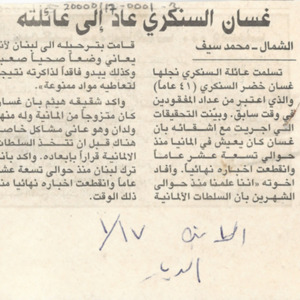 20000/17-0001-2
غسان السنكري عاد إلى عائلته
الشمال - محمد سيف
تسلمت عائلة السنكري نجلها
غسان خضر السنكري (٤١ عاما)
والذي اعتبر من عداد المفقودين
في وقت سابق. وبينت التحقيقات
التي اجريت مع اشقائه بأن
غسان كان يعيش في المانيا منذ
حوالي تسعة عشر عاماً
وانقطعت اخباره نهائياً. وأفاد
اخوته «اننا علمنا منذ حوالى
الشهرين بأن السلطات الألمانية
قامت بترحيله الى لبنان لأنه
يعاني وضعاً صحياً صعباً
وكذلك يبدو فاقداً لذاكرته نتيجة
لتعاطيه مواد ممنوعة».
واكد شقيقه هيثم بأن غسان
كان متزوجاً من المانية وله منها
ولدان وهو عانى مشاكل خاصة
هناك قبل ان تتخذ السلطات
الالمانية قراراً بإبعاده. وأكد بأنه
ترك لبنان منذ حوالى تسعة عشر
عاماً وانقطعت اخباره نهائيا منذ
ذلك الوقت.
١/١٧
الديار